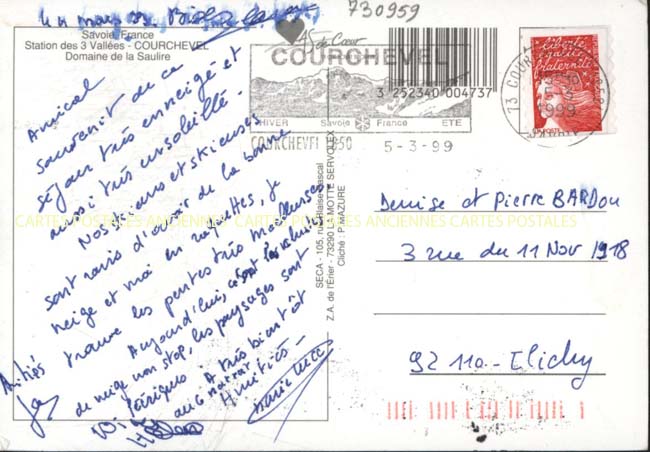 730959
Savoie, France
Station des 3 Vallées - COURCHEVEL
Domaine de la Saulire
Amical
souvenir de ce
séjour très enneigé et
aussi très ensoleillé.
Nos skieurs et skieuses
sont ravis d'avoir de la bonne
neige et moi en raquettes, je
trouve les pentes très moelleuses
Aujourd'hui,
de neige non stop, les paysages sont
A très bientôt
Amitiés
Amitiés
SECA - 105, rue Blaise-Pascal
Z.A. de l'Erier - 73290 LA MOTTE SERVOLEX
Cliché : P. MAZURE
AS de Cœur
COURCHEVEL
HIVER Savoie France ETE
COURCHEVEL 1850
5-3-99
3 252340 004737
liberté
égalité
fraternité
LA POSTE
1999
Denise et Pierre BARDOU
3 rue du 11 Nov 1918
92 110 - Clichy
CARTES POSTALES ANCIENNES CARTES POSTALES